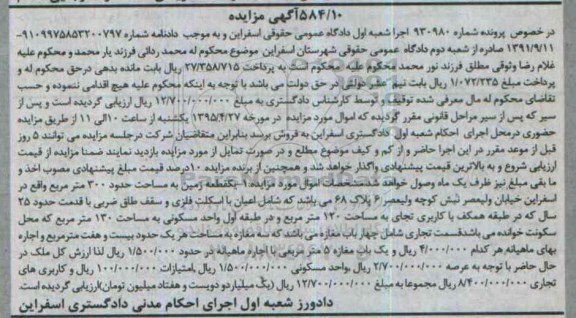 ۵۸۴/۱۰آگهی مزایده
در خصوص پرونده شماره ۹۳۰۹۸۰ اجرا شعبه اول دادگاه عمومی حقوقی اسفراین و به موجب دادنامه شماره ۹۱۰۹۹۷۵۸۵۳۲۰۰۷۹۷-
۱۳۹۱/۹/۱۱ صادره از شعبه دوم دادگاه عمومی حقوقی شهرستان اسفراین موضوع محکوم له محمد ردائی فرزند یار محمد و محکوم علیه
غلام رضا وثوقی مطلق فرزند نور محمد محکوم علیه محکوم است به پرداخت ۲۷/۳۵۸/۷۱۵ ریال بابت مانده بدهی درحق محکوم له و
پرداخت مبلغ ۱/۰۷۲/۲۳۵ ریال بابت نیم عشر دولتی در حق دولت می باشد با توجه به اینکه محکوم علیه هیچ اقدامی ننموده و حسب
تقاضای محکوم له مال معرفی شده توقیف و توسط کارشناس دادگستری به مبلغ ۱۲/۷۰۰/۰۰۰/۰۰۰ ریال ارزیابی گردیده است و پس از
سیر که پس از سیر مراحل قانونی مقرر گردیده که اموال مورد مزایده در مورخه ۱۳۹۵/۴/۲۷ یکشنبه از ساعت ۱۰الی ۱۱ از طریق مزایده
حضوری درمحل اجرای احکام شعبه اول دادگستری اسفراین به فروش برسد بنابراین متقاضیان شرکت درجلسه مزایده می توانند ۵ روز
قبل از موعد مقرر در این اجرا حاضر و از کم و کیف موضوع مطلع و در صورت تمایل از مورد مزایده بازدید نمایند ضمنا مزایده از قیمت
ارزیابی شروع و به بالاترین قیمت پیشنهادی واگذار خواهد شد و همچنین از برنده مزایده ۱۰درصد قیمت مبلغ پیشنهادی مصوب اخذ و
ما بقی مبلغ نیز ظرف یک ماه وصول خواهد شد.مشخصات اموال مورد مزایده ۱-یکقطعه زمین به مساحت حدود ۳۰۰ متر مربع واقع در
اسفراین خیابان ولیعصر نبش کوچه ولیعصر ۶ پلاک ۶۸ می باشد که شامل اعیان با اسکلت فلزی و سقف طاق ضربی با قدمت حدود ۲۵
سال که در طبقه همکف با کاربری تجاری به مساحت ۱۲۰ متر مربع و در طبقه اول واحد مسکونی به مساحت ۱۳۰ متر مربع که محل
سکونت خوانده می باشدقسمت تجاری شامل چهار باب مغازه می باشد که سه مغازه به مساحت هر یک حدود بیست و هفت مترمربع و اجاره
بهای ماهیانه هر کدام ۴/۰۰۰/۰۰۰ ریال و یک باب مغازه ۵ متر مربعی با اجاره ماهیانه در حدود ۱/۵۰۰/۰۰۰ ریال لذا ارزش کل ملک در
حال حاضر با توجه به عرصه ۲/۷۰۰/۰۰۰/۰۰۰ ریال ،واحد مسکونی ۱/۵۰۰/۰۰۰/۰۰۰ ریال ،امتیازات ۱۰۰/۰۰۰/۰۰۰ ریال و کاربری های
تجاری ۸/۴۰۰/۰۰۰/۰۰۰ ریال مجموعا به مبلغ ۱۲/۷۰۰/۰۰۰/۰۰۰ ریال (یک میلیاردو دویست و هفتاد میلیون تومان)ارزیابی گردیده است.
دادورز شعبه اول اجرای احکام مدنی دادگستری اسفراین